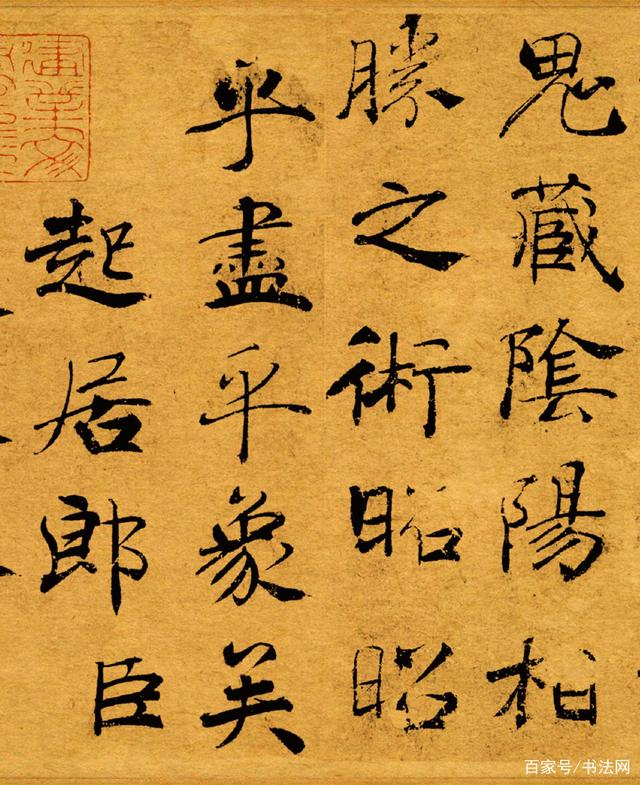 鬼藏陰陽相
勝之術昭昭
乎盡乎象矣
起居郎臣
百家号/书法网